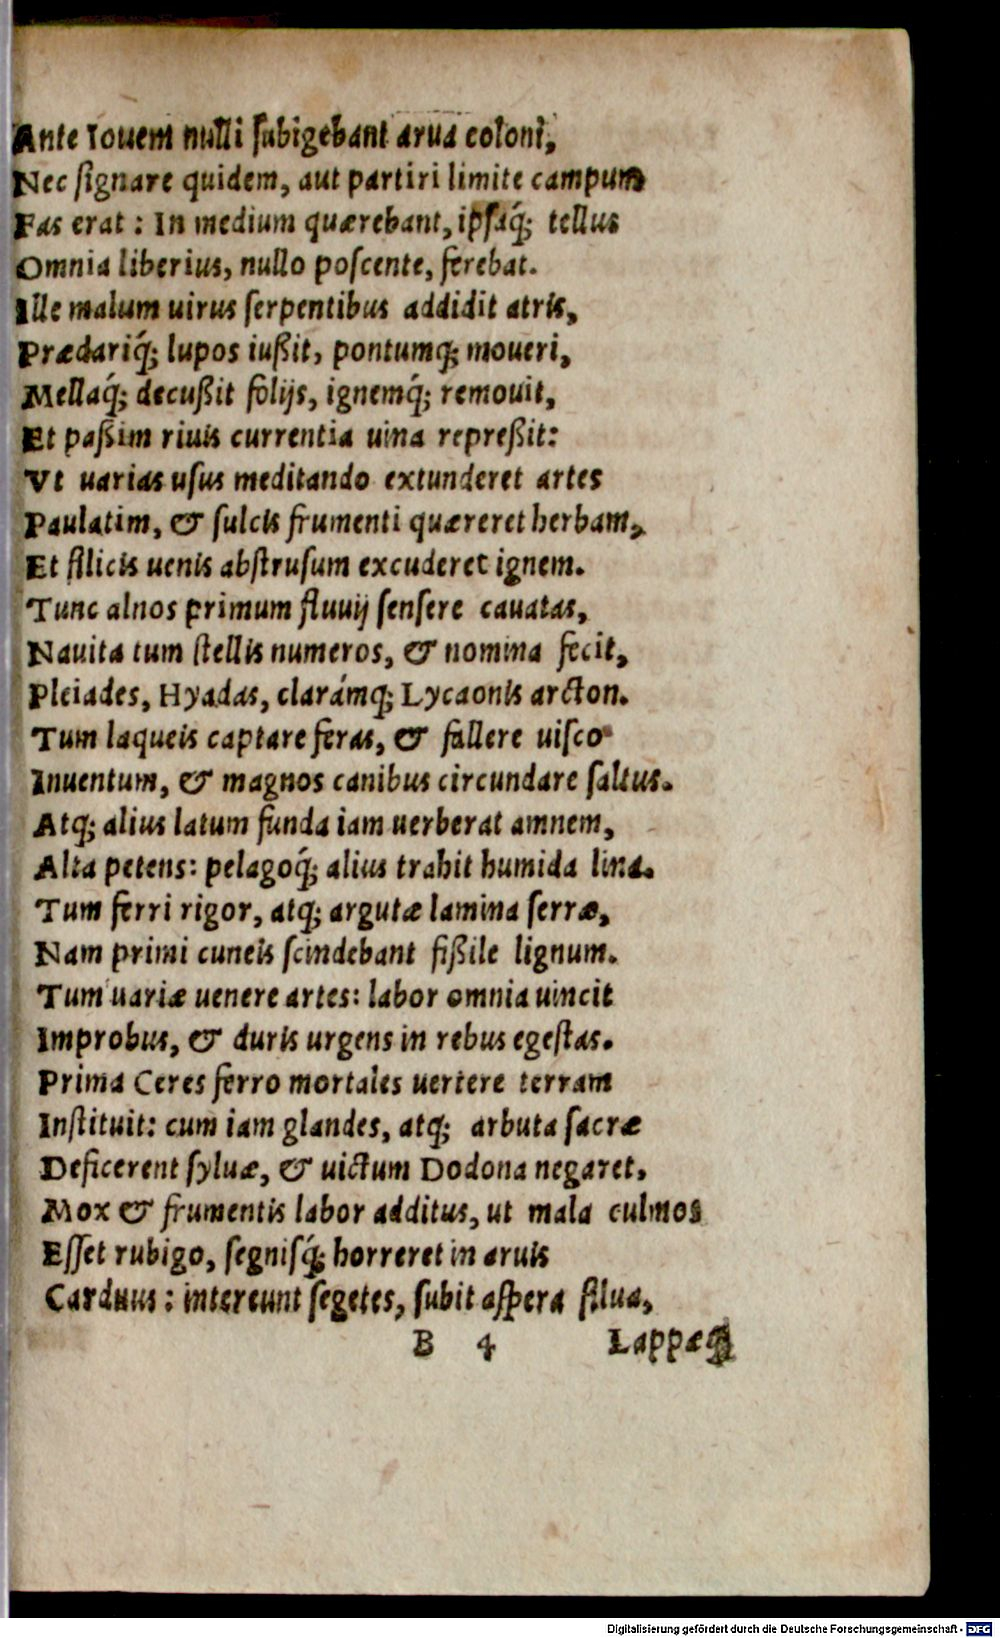 Ante Iouem nulli ſubigebant arua coloni,
Nec ſignare quidem, aut partiri limite campum
Fas erat: In medium quærebant, ipſaq́; tellus
Omnia liberius, nullo poſcente, ferebat.
Ille malum uirus ſerpentibus addidit atris,
Prædariq́; lupos iußit, pontumq́; moueri,
Mellaq́; decußit folijs, ignemq́; remouit,
Et paßim riuis currentia uina repreßit:
Vt uarias uſus meditando extunderet artes
Paulatim, & ſulcis frumenti quæreret herbam,
Et ſilicis uenis abſtruſum excuderet ignem.
Tunc alnos primum fluuij ſenſere cauatas,
Nauita tum ſtellis numeros, & nomina fecit,
Pleiades, Hyadas, clarámq; Lycaonis arcton.
Tum laqueis captare feras, & fallere uiſco
Inuentum, & magnos canibus circundare ſaltus.
Atq; alius latum funda iam uerberat amnem,
Alta petens: pelagoq́; alius trahit humida lina.
Tum ferri rigor, atq; argutæ lamina ſerræ,
Nam primi cuneis ſcindebant fißile lignum.
Tum uariæ uenere artes: labor omnia uincit
Improbus, & duris urgens in rebus egeſtas.
Prima Ceres ferro mortales uertere terram
Inſtituit: cum iam glandes, atq; arbuta ſacræ
Deficerent ſyluæ, & uictum Dodona negaret.
Mox & frumentis labor additus, ut mala culmos
Eſſet rubigo, ſegniſq́; horreret in aruis
Carduus: intereunt ſegetes, ſubit aſpera ſilua,
B 4 Lappæq́;
Digitalisierung gefördert durch die Deutsche Forschungsgemeinschaft - DFG